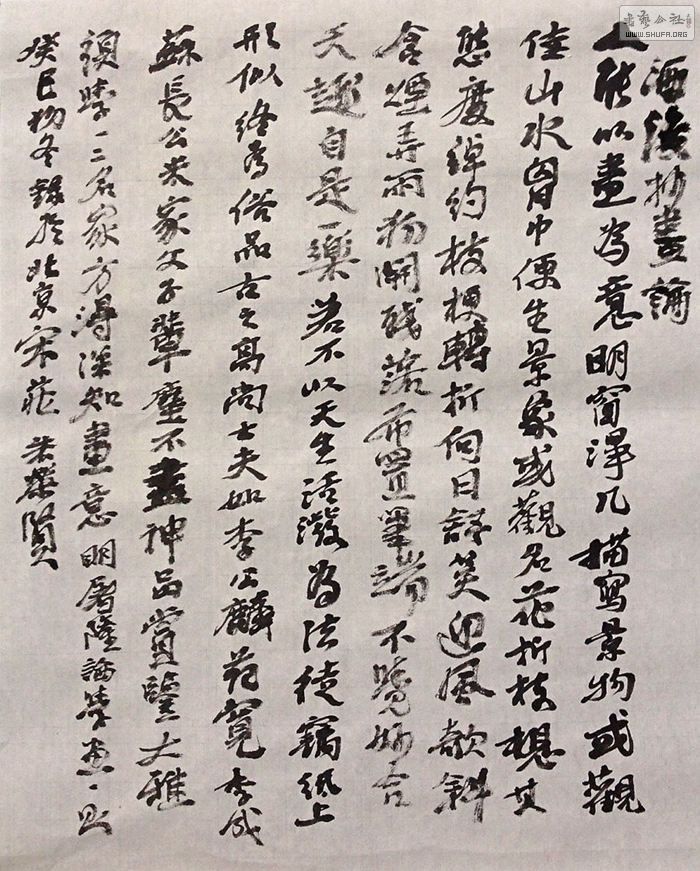 酒後抄畫論
人能以畫為意明窗淨几描寫景物或觀
佳山水胷中便生景象或觀名花折枝想其
態度綽約枝梗轉折向日舒英迎風欹斜
含煙弄雨初開殘落布置筆端不覺妙合
天趣自是一樂若不以天生活潑為法徒竊紙上
形似終為俗品古之高尚士夫如李公麟范寬李成
蘇長公米家父子輩塵不盡神品賞鑒大雅
須學一二名家方得深知畫意明屠隆論學畫一則
癸巳初冬錄於北京宋莊 賢
書藝公社
WWW.SHUFA.ORG